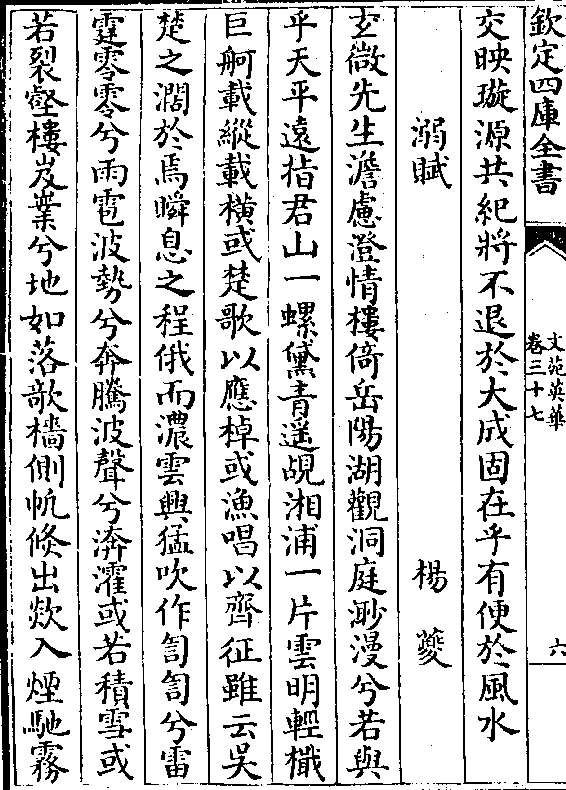 欽定四庫全書
文苑英華
卷三十七
六
交映璇源共紀將不退於大成固在乎有便於風水
溺賦 楊夔
玄微先生澹慮澄情樓倚岳陽湖觀洞庭渺漫兮若與
乎天平遠指君山一螺黛青遥覘湘浦一片雲明輕檝
巨舸載縱載橫或楚歌以應棹或漁唱以齊征雖云吳
楚之濶於焉瞬息之程俄而濃雲興猛吹作訇訇兮雷
霆零零兮雨雹波勢兮奔騰波聲兮渀濩或若積雪或
若裂壑樓岌業兮地如落欹檣側帆倏出欻入煙馳霧